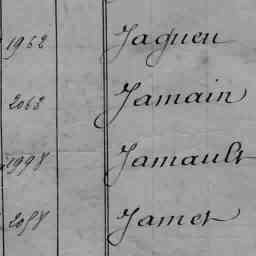 1962 Jagueu
2063 Jamain
1998 Jamault
2058 Jamet